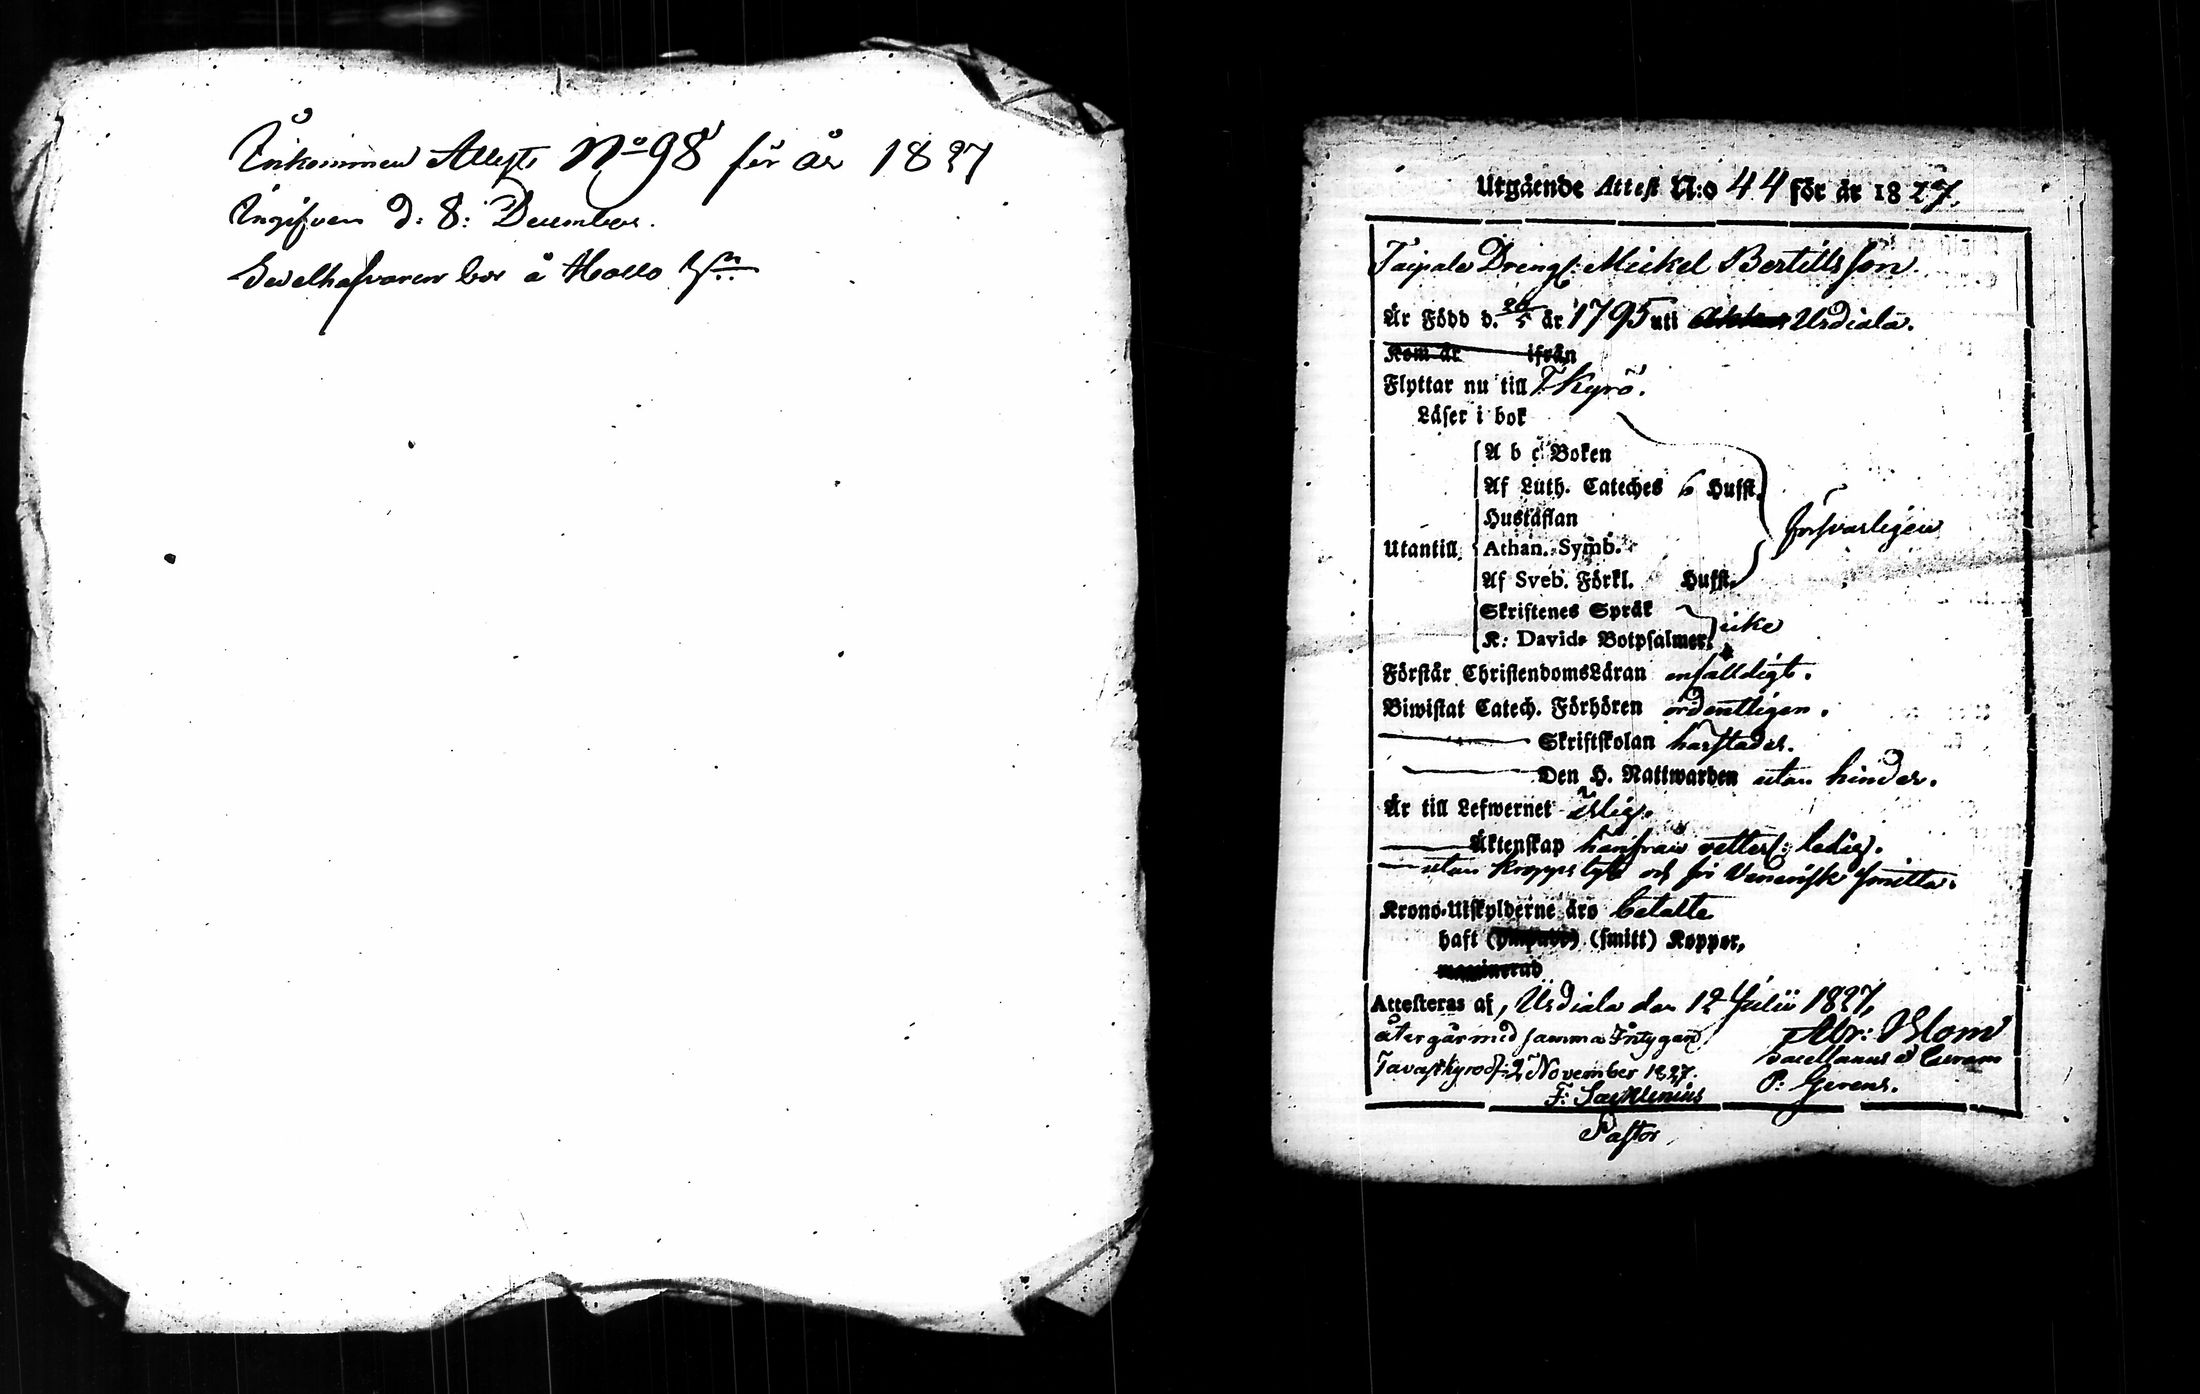 Inkommen Attest No 98 för år 1827
Ingifven d: 8: December.
Sedelhafvaren bor å Hallo
Utgående Attest N:o 44 för år 1827.
Taipale Dreng: Mickel Bertills son.
Är Född d. 26/5 år 1795 uti Urdiala.
Kom år ifrån
Flyttar nu till T. Kyrö.
Läser i bok
A b c Boken
Af Luth. Cateches 6 Hufst.
Hustaflan
försvarligen
Utantill Athan. Symb.
Af Sveb. Förkl. Hufst.
Skriftenes Språk
icke
K: Davids Botpsalmer.
Förstår ChristendomsLäran enfalldigt.
Biwistat Catech. Förhören ordentligen.
Skriftskolan härstädes.
Den H. Nattwarden utan hinder.
Är till Lefwernet ärlig.
Äktenskap härifrån ledig.
utan kroppslyte och fri Venerisk smitta.
Krono-Utskylderne äro betalte
haft (smitt) Koppor,
Attesteras af, Urdiala den 12 Julii 1827,
Abr: Blom
återgår med samma Intygan
Sacellanus & Curam
Tavastkyro d: 2 November 1827.
P: Gerens.
Pastor